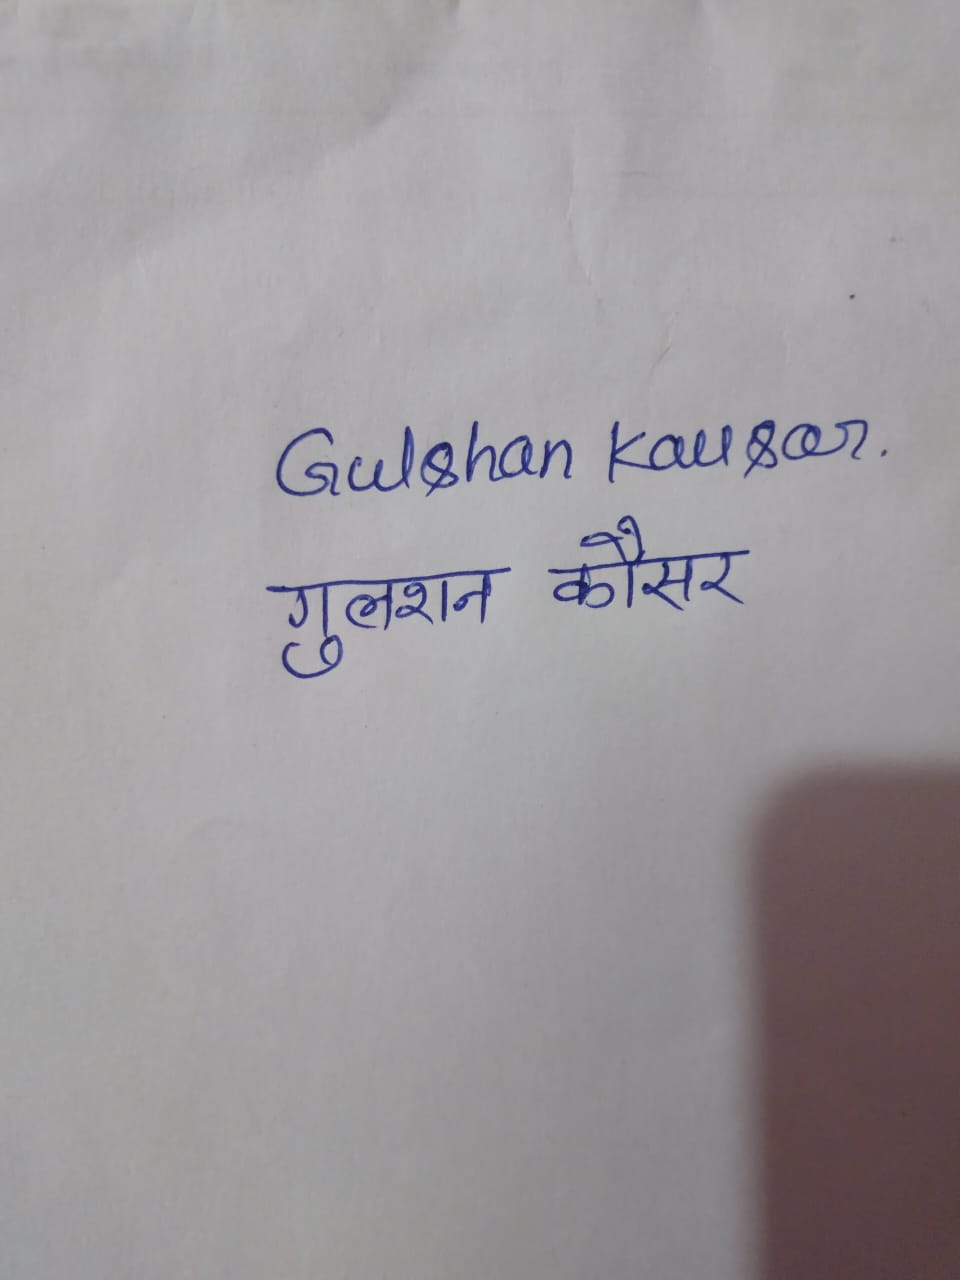 Gulshan Kausar.
गुलशन कौसर